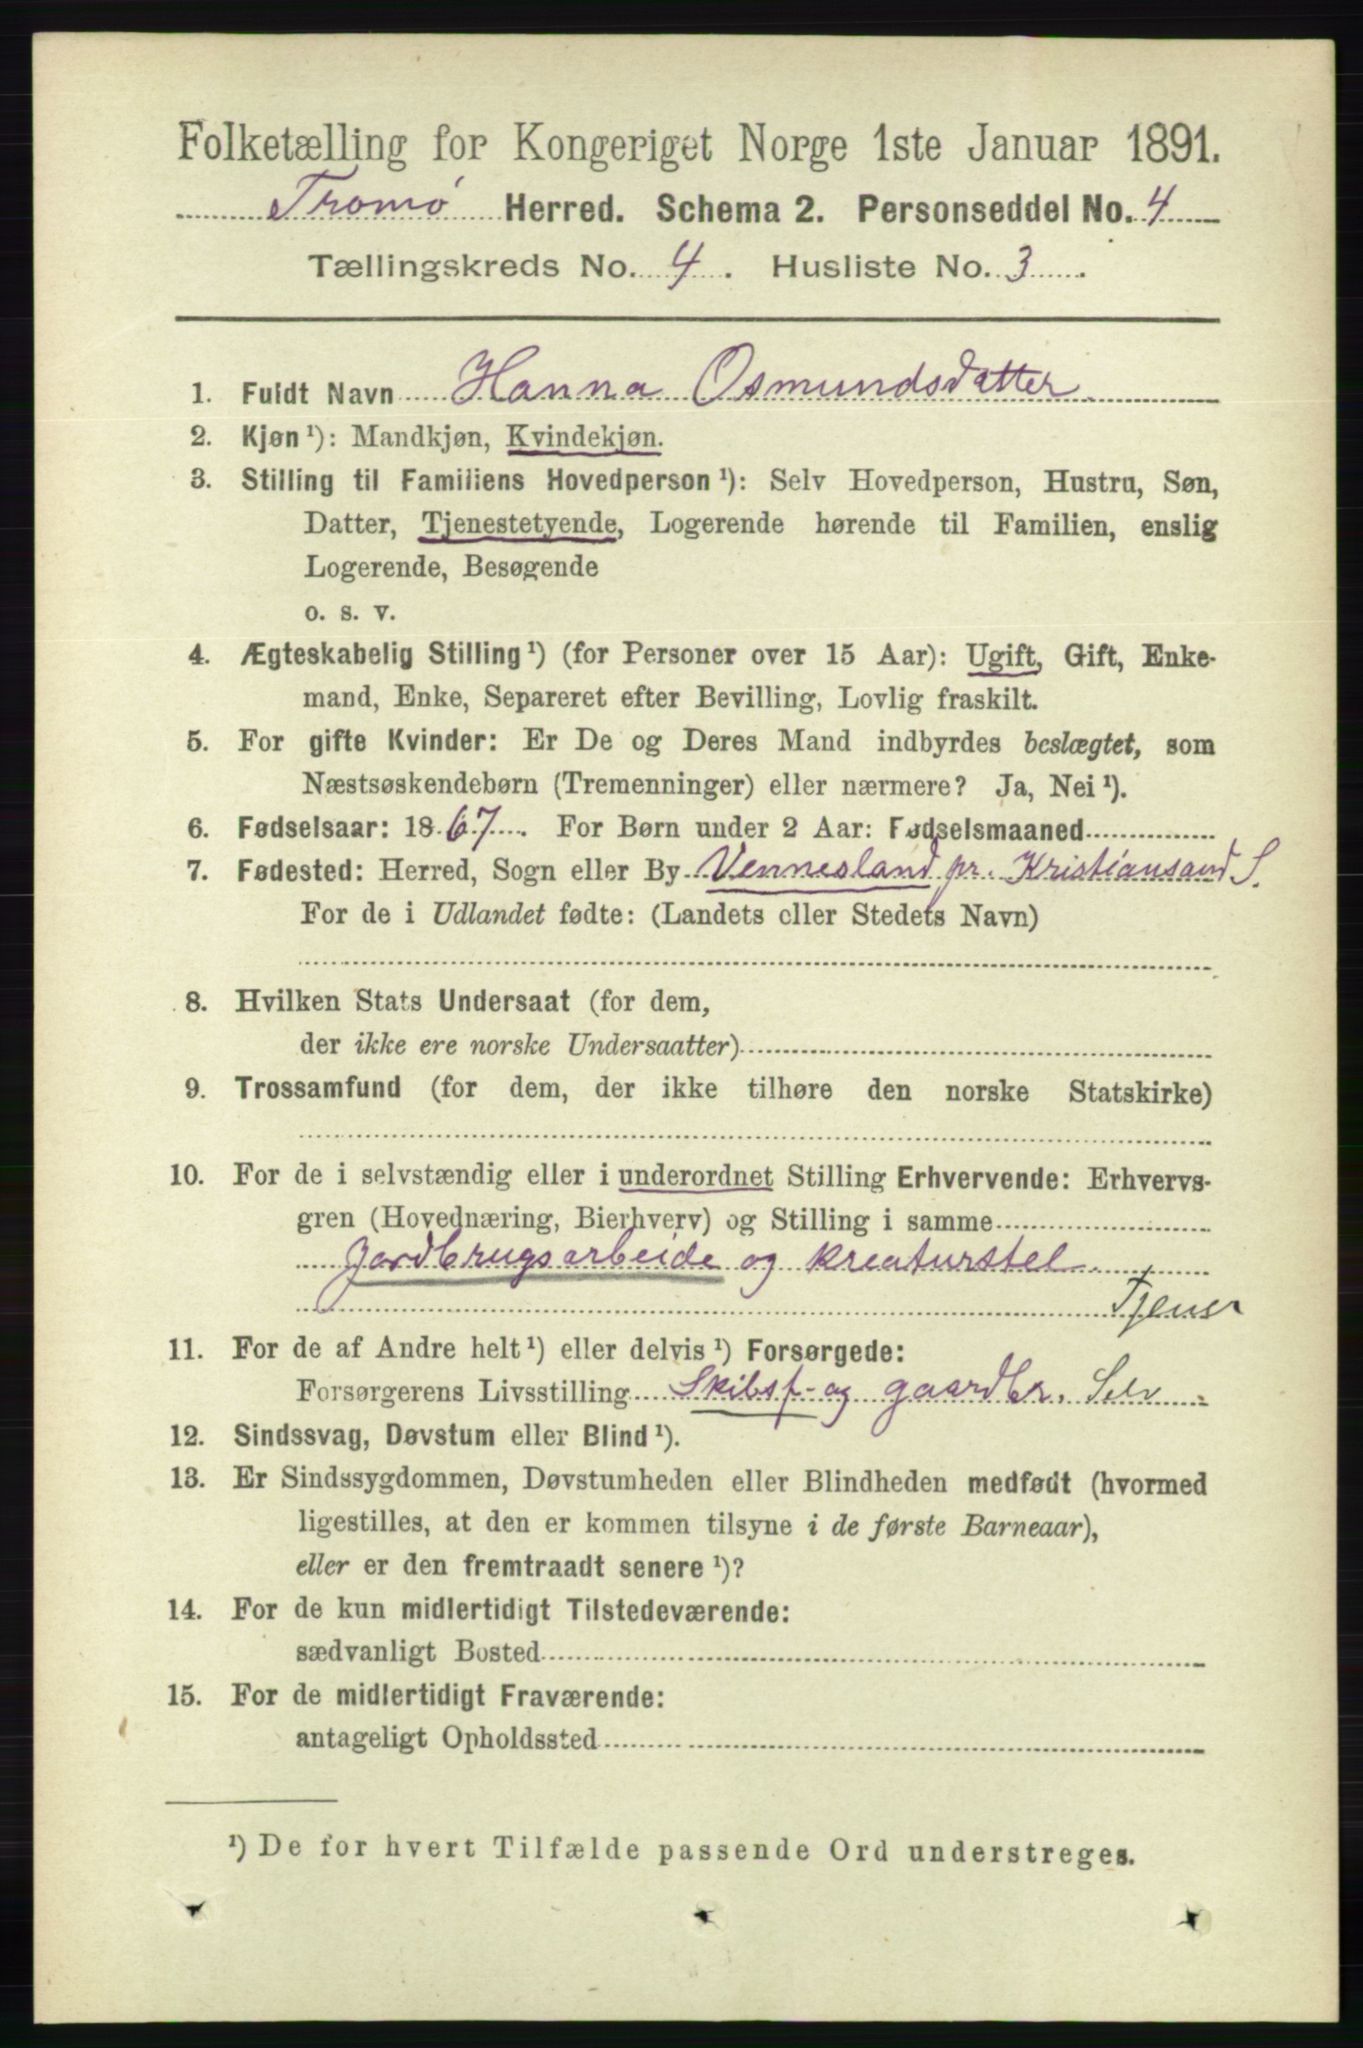 Folketælling for Kongeriget Norge 1ste Januar 1891.
Tromø Herred. Schema 2. Personseddel No. 4
Tællingskreds No. 4. Husliste No. 3.
1. Fuldt Navn Hanna Osmundsdatter.
2. Kjøn ¹): Mandkjøn, Kvindekjøn.
3. Stilling til Familiens Hovedperson ¹): Selv Hovedperson, Hustru, Søn,
Datter, Tjenestetyende, Logerende hørende til Familien, enslig
Logerende, Besøgende
o. s. v.
4. Ægteskabelig Stilling ¹) (for Personer over 15 Aar): Ugift, Gift, Enke-
mand, Enke, Separeret efter Bevilling, Lovlig fraskilt.
5. For gifte Kvinder: Er De og Deres Mand indbyrdes beslægtet, som
Næstsøskendebørn (Tremenninger) eller nærmere? Ja, Nei ¹).
6. Fødselsaar: 1867. For Børn under 2 Aar: Fødselsmaaned
7. Fødested: Herred, Sogn eller By Vennesland pr. Kristiansand S.
For de i Udlandet fødte: (Landets eller Stedets Navn)
8. Hvilken Stats Undersaat (for dem,
der ikke ere norske Undersaatter)
9. Trossamfund (for dem, der ikke tilhøre den norske Statskirke)
10. For de i selvstændig eller i underordnet Stilling Erhvervende: Erhvervs-
gren (Hovednæring, Bierhverv) og Stilling i samme
Jordbrugsarbeide og kreaturstel.
Tjener
11. For de af Andre helt ¹) eller delvis ¹) Forsørgede:
Forsørgerens Livsstilling Skibsf- og gaardbr. Selv
12. Sindssvag, Døvstum eller Blind ¹).
13. Er Sindssygdommen, Døvstumheden eller Blindheden medfødt (hvormed
ligestilles, at den er kommen tilsyne i de første Barneaar),
eller er den fremtraadt senere ¹)?
14. For de kun midlertidigt Tilstedeværende:
sædvanligt Bosted
15. For de midlertidigt Fraværende:
antageligt Opholdssted
¹) De for hvert Tilfælde passende Ord understreges.